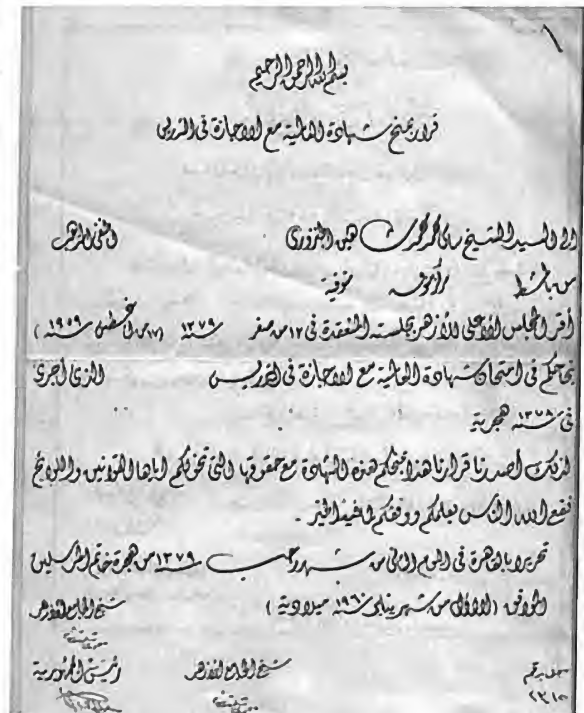 ١
بسم الله الرحمن الرحيم
قرار بمنح شهادة العالمية مع الاجازة فى التدريس
الى السيد الشيخ محمد محمد شاهين الحنفى المذهب
من منوفية
أقر المجلس الأعلى للأزهر بجلسته المنعقدة فى ١٢ من صفر سنة ١٣٧٩ (١٧ من أغسطس سنة ١٩٥٩)
نجاحكم فى امتحان شهادة العالمية مع الاجازة فى التدريس الذى أجرى
فى سنة ١٣٧٨ هجرية
لذلك أصدرنا قرارنا هذا بمنحكم هذه الشهادة مع حقوقها التى تخولكم اياها القوانين واللوائح
نفع الله الناس بعلمكم ووفقكم لما فيه الخير .
تحريرا بالقاهرة فى اليوم الثانى من شهر رجب سنة ١٣٧٩ من هجرة خاتم المرسلين
الموافق (الأول من شهر يناير سنة ١٩٦٠ ميلادية)
شيخ الجامع الأزهر
سجل برقم شيخ الجامع الأزهر رئيس الجمهورية